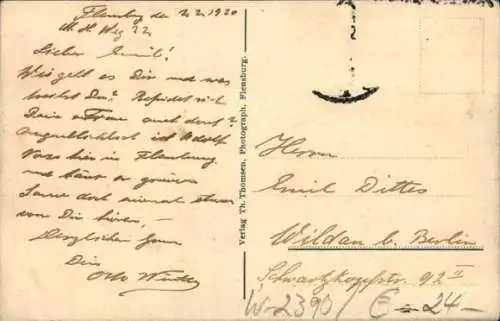 Flensburg den 2.2.1920
Lieber Emil!
Wie geht es Dir und was
machst Du? Befindet sich
Deine Frau auch dort?
Augenblicklich ist Adolf
hier in Flensburg
und
doch einmal etwas
von Dir hören. –
Herzlichen Gruss
Dein
Otto
Verlag Th. Thomsen, Photograph, Flensburg.
Herrn
Emil Dittes
Wildau b. Berlin
Schwartzkopfstr. 92 II
W-2390/ E = 24.-